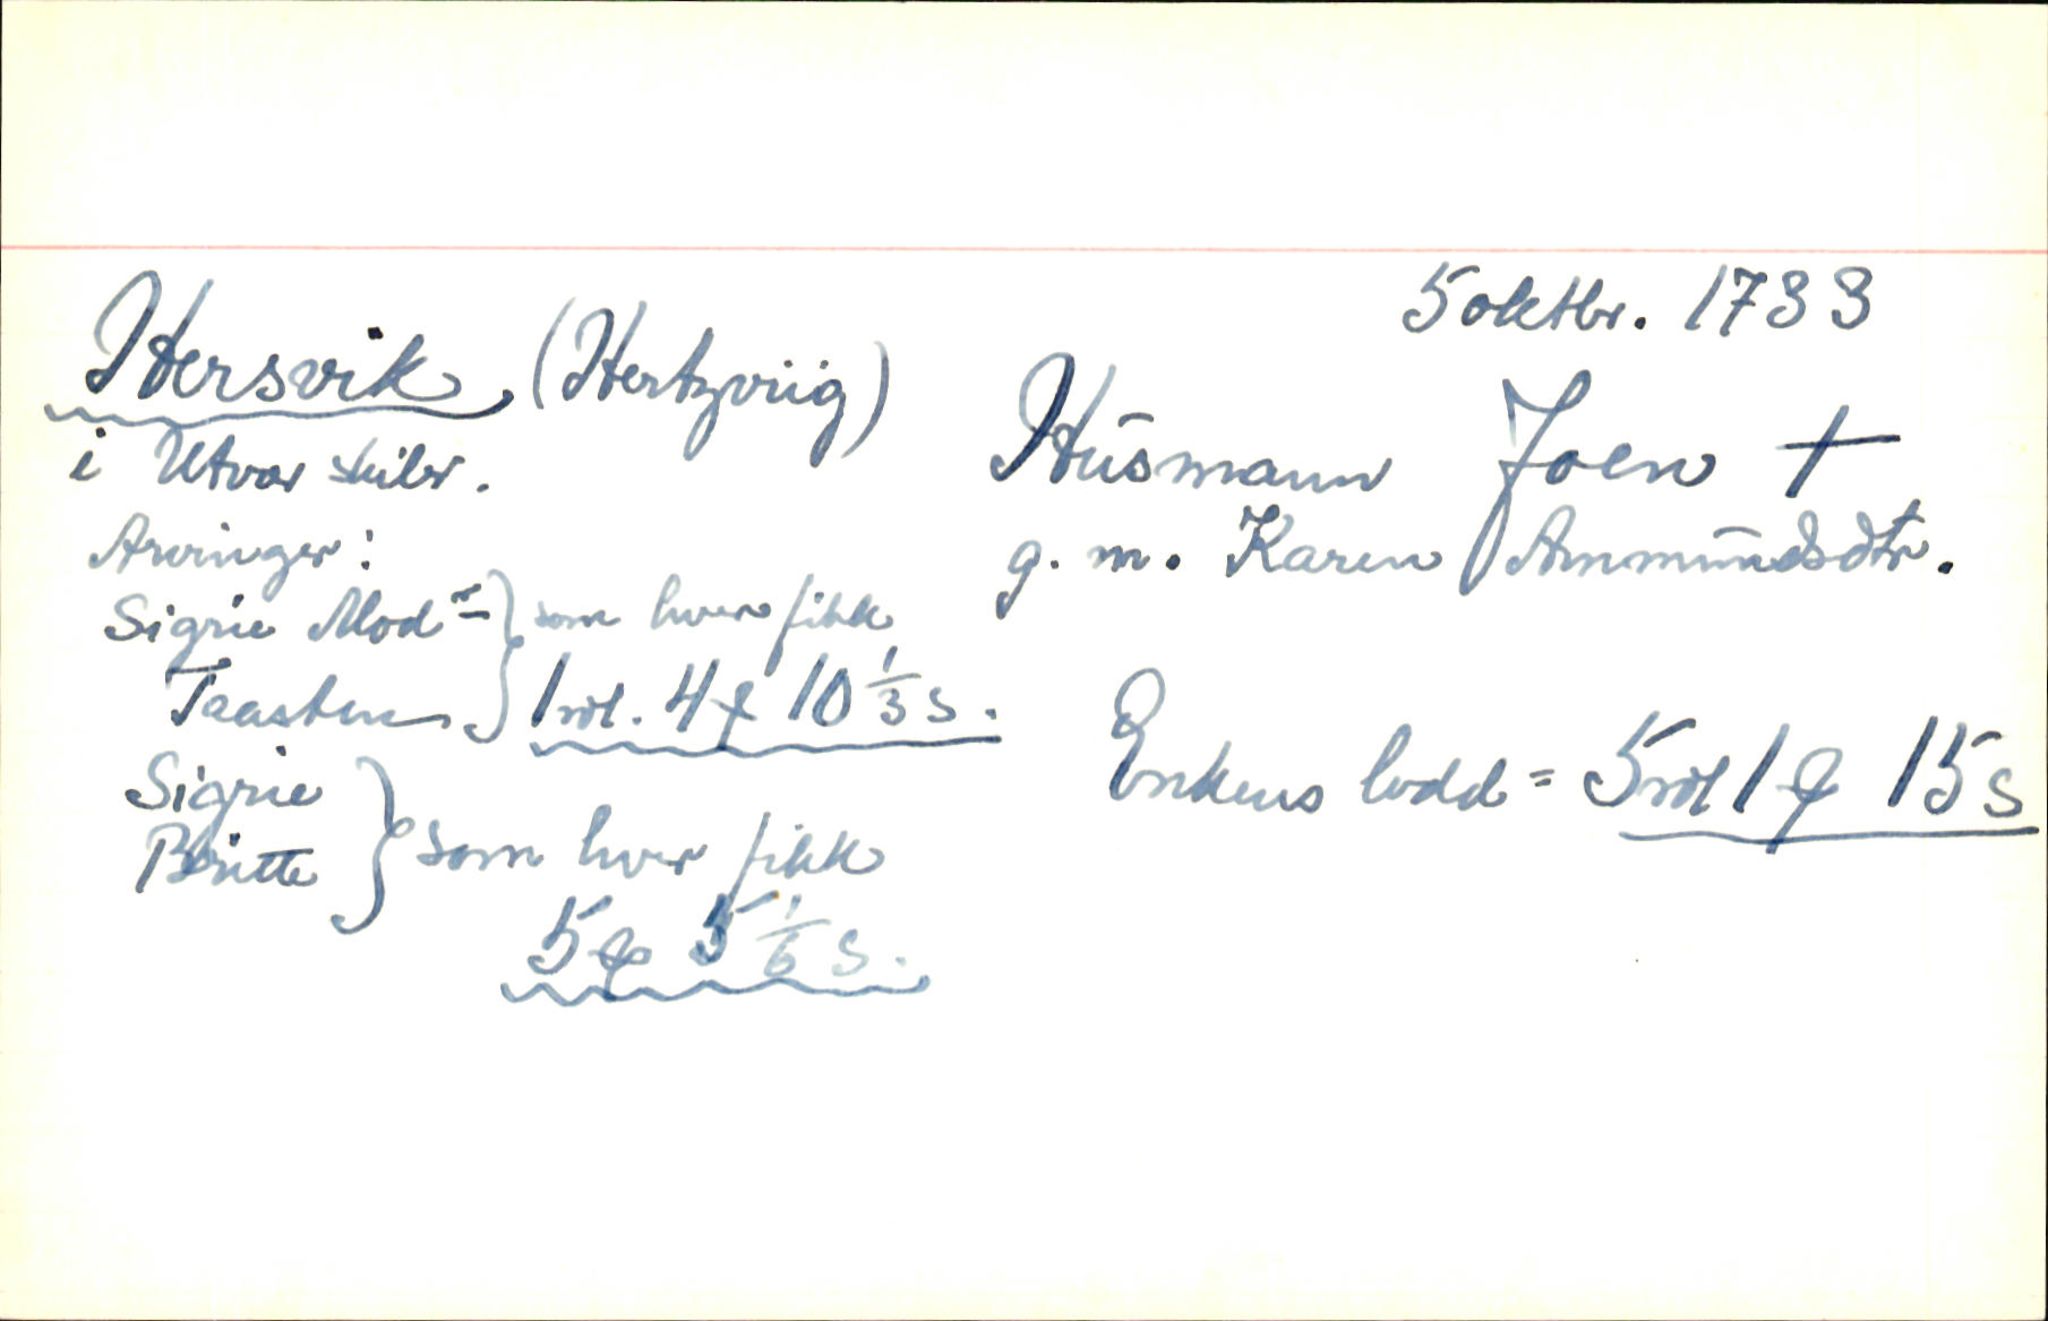 5 oktbr. 1733
Hersvik (Hertzviig)
i Utvær skibr.
Husmann Joen †
g. m. Karen Ammundsdtr.
Arvinger:
Sigrie Mod =
Taasten
} som hver fikk
1 rdl. 4 ƒ 10 1/3 s.
Sigrie
Britte
} som hver fikk
5 ƒ 5 1/6 s.
Enkens lodd = 5 rdl 1 ƒ 15 s